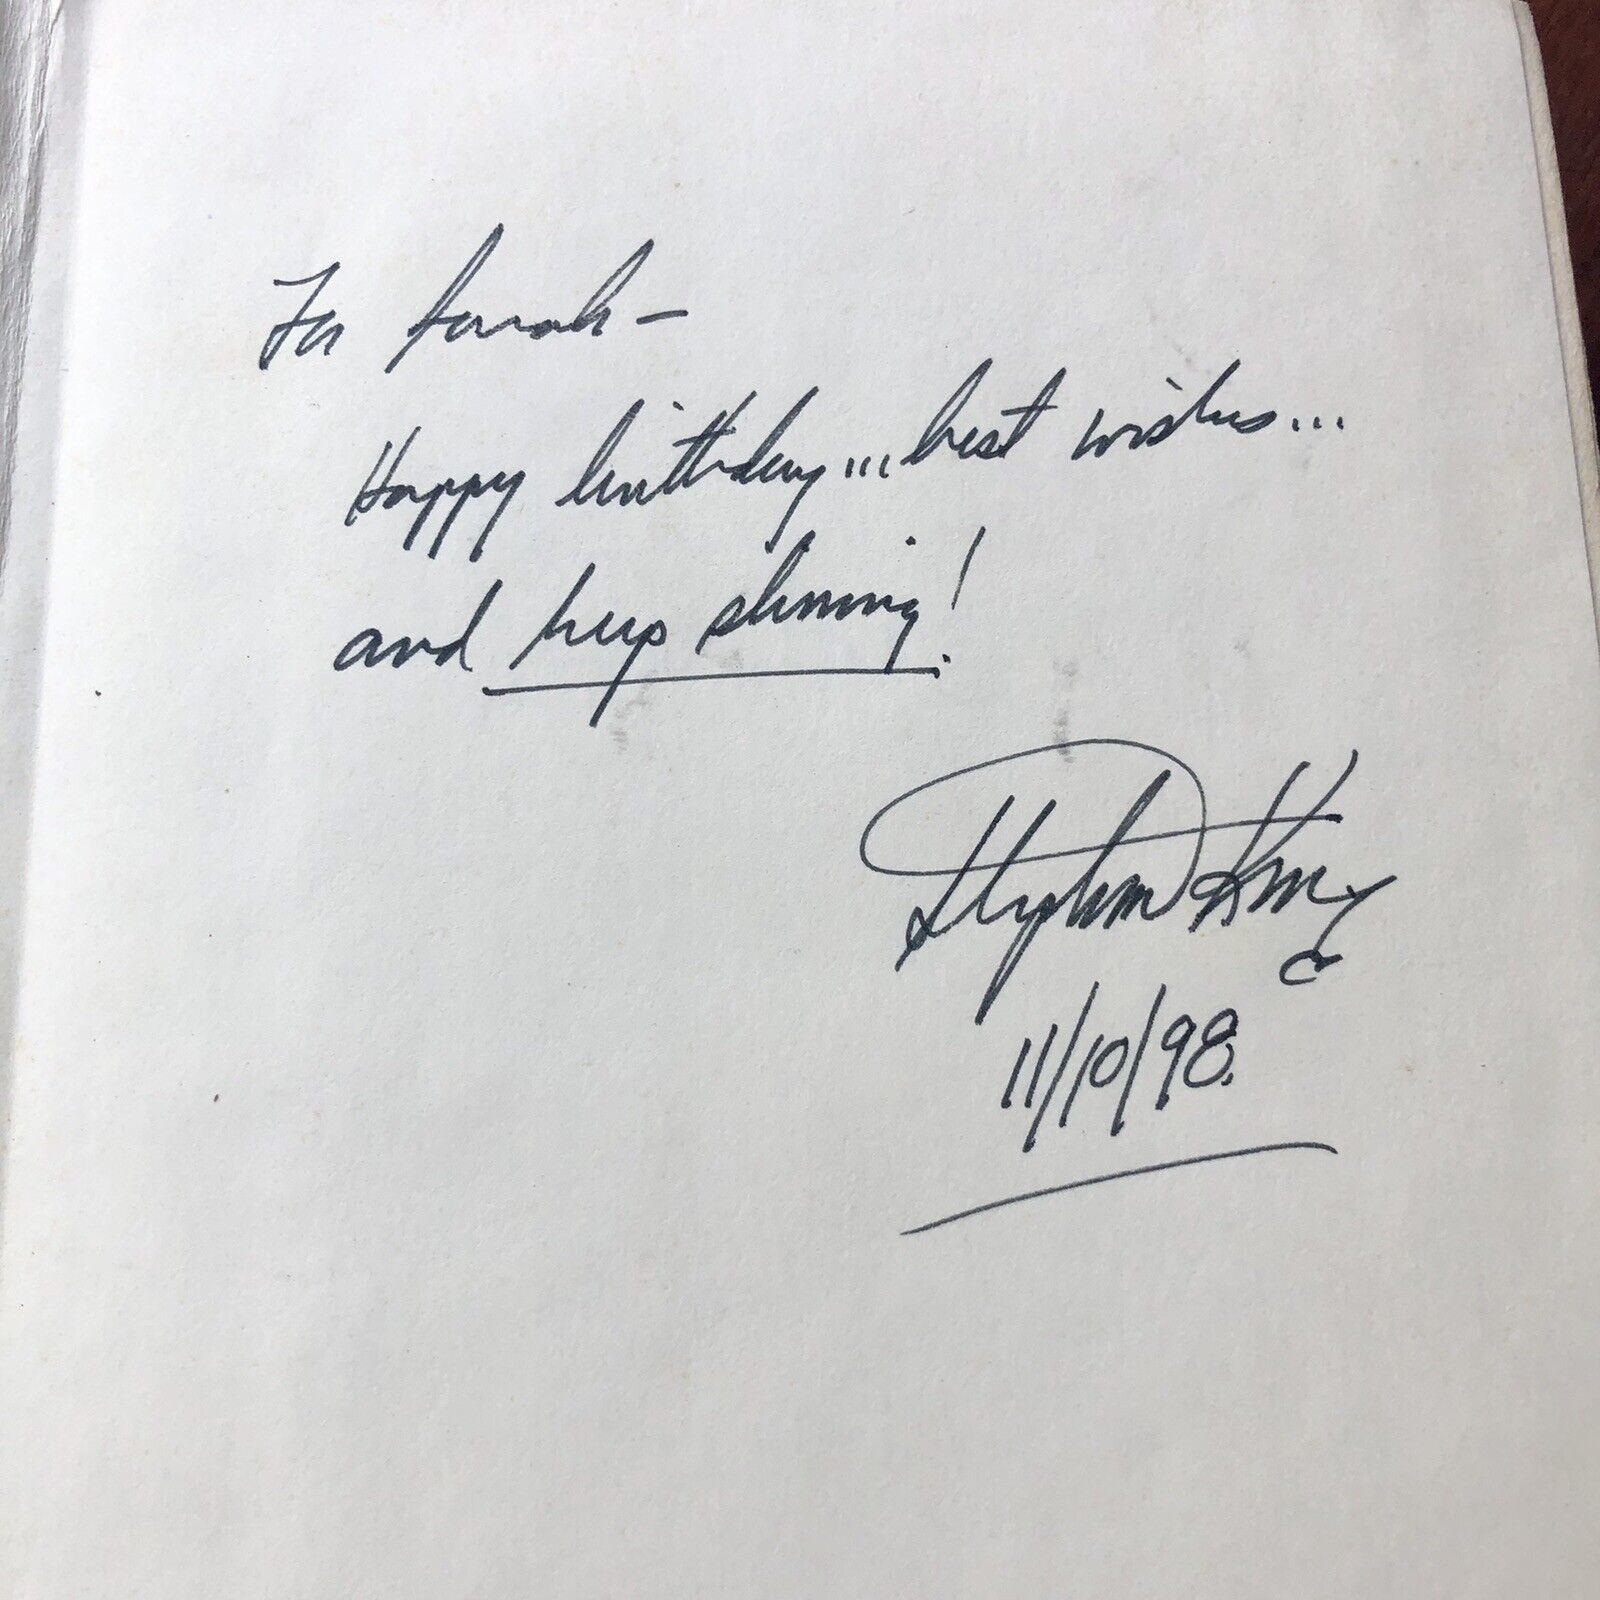 For Sarah—
Happy birthday...best wishes...
and keep shining!
Stephen King
11/10/98.